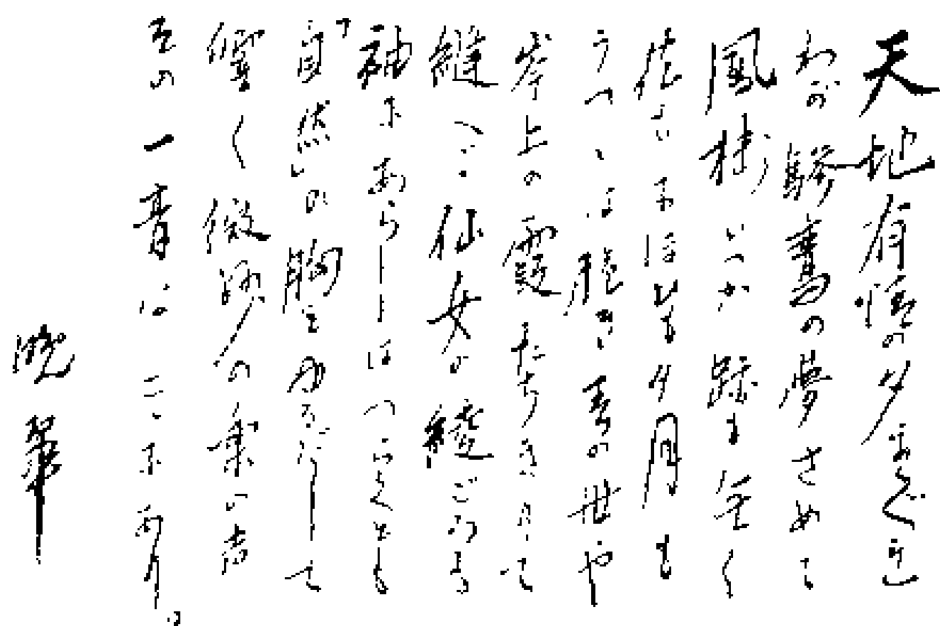 天地有情の夕まぐれ
わが驂鸞の夢さめて
いつか跡も無く
花もにほひも夕月も
うつゝは脆き春の世や
岑上の霞たちきりて
縫へる仙女の綾ごろも
袖にあらしはつらくとも
「自然」の胸をゆるがして
響く微妙の楽の声
その一音はこゝにあり。
晩翠